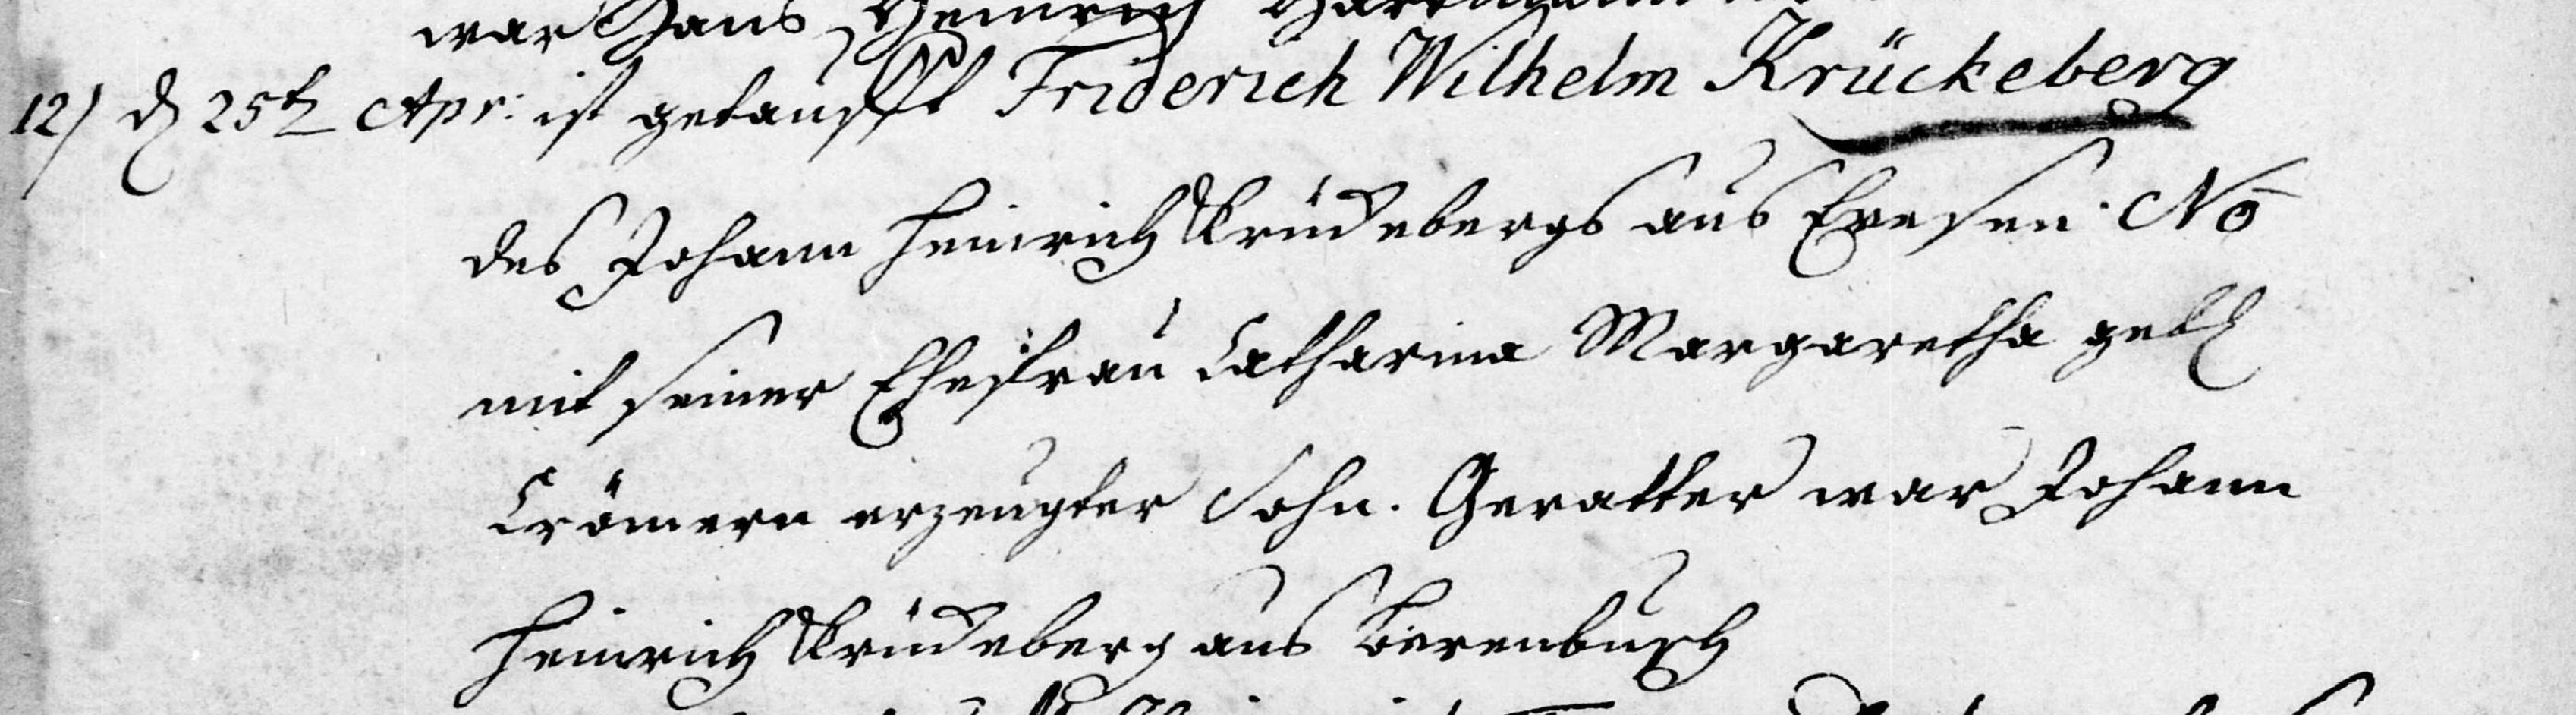 war Hans Heinrich
12) d 25t Apr: ist getaufft Friderich Wilhelm Krückeberg
des Johann Heinrich Krückebergs aus Evesen No
mit seiner Ehefrau Catharina Margaretha geb
Crömern erzeugter Sohn. Gevatter war Johann
Heinrich Krückeberg aus Berenbusch